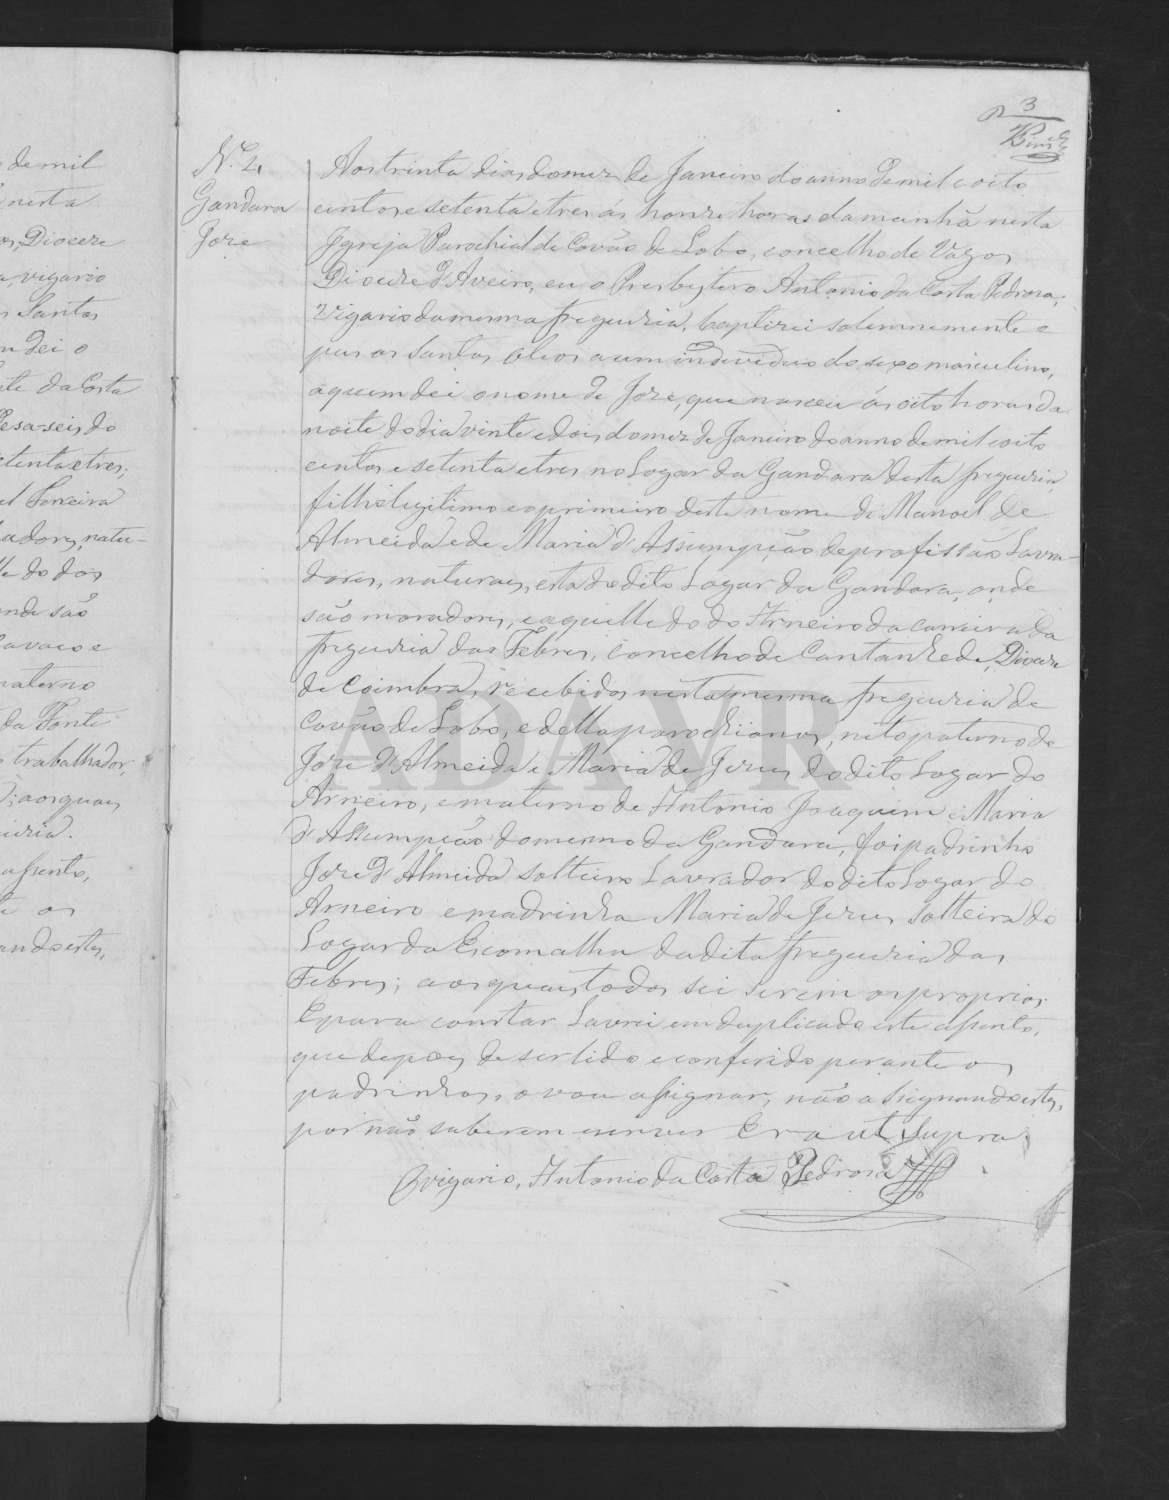 3
N.º 4
Gandara
Joze
Aos trinta dias do mez de Janeiro do anno de mil e oito
centos e setenta e tres ás honze horas da manhã nesta
Igreja Parochial de Covão de Lobo, concelho de Vagos
Diocese d'Aveiro, eu o Presbytero Antonio da Costa Pedrosa,
Vigario da mesma freguezia, baptizei solemnemente e
pus os Santos Oleos a um individuo do sexo masculino,
a quem dei o nome de Joze, que nasceu ás oito horas da
noite do dia vinte e dois do mez de Janeiro do anno de mil oito
centos e setenta e tres no Logar da Gandara desta freguezia,
filho legitimo e o primeiro deste nome de Manoel de
Almeida e de Maria d'Assumpção de profissão Lavra-
dores, naturaes, esta do dito Logar da Gandara, onde
são moradores, e aquelle do do Arneiro da
freguezia das Febres, concelho de Cantanhede, Diocese
de Coimbra, recebidos nesta mesma freguezia de
Covão de Lobo, e della parochianos, neto paterno de
Joze d'Almeida e Maria de Jezus do dito Logar do
Arneiro, e materno de Antonio Joaquim e Maria
d'Assumpção do mesmo da Gandara, foi padrinho
Joze d'Almeida solteiro Lavrador do dito Logar do
Arneiro e madrinha Maria de Jezus solteira do
Logar da Escomalha da dita freguezia das
Febres; aos quaes todos sei serem os proprios.
E para constar Lavrei em duplicado este assento,
que depois de ser lido e conferido perante os
padrinhos, o vou assignar, não assignando estes,
por não saberem escrever Era ut supra.
O vigario, Antonio da Costa Pedrosa
de mil
nesta
Diocese
vigario
Santos
dei o
da Costa
seis do
setenta e tres,
Ferreira
natu-
do dos
onde são
e
materno
da Fonte
trabalhador,
aos quaes
assento,
os
ando estes,
ADAVR